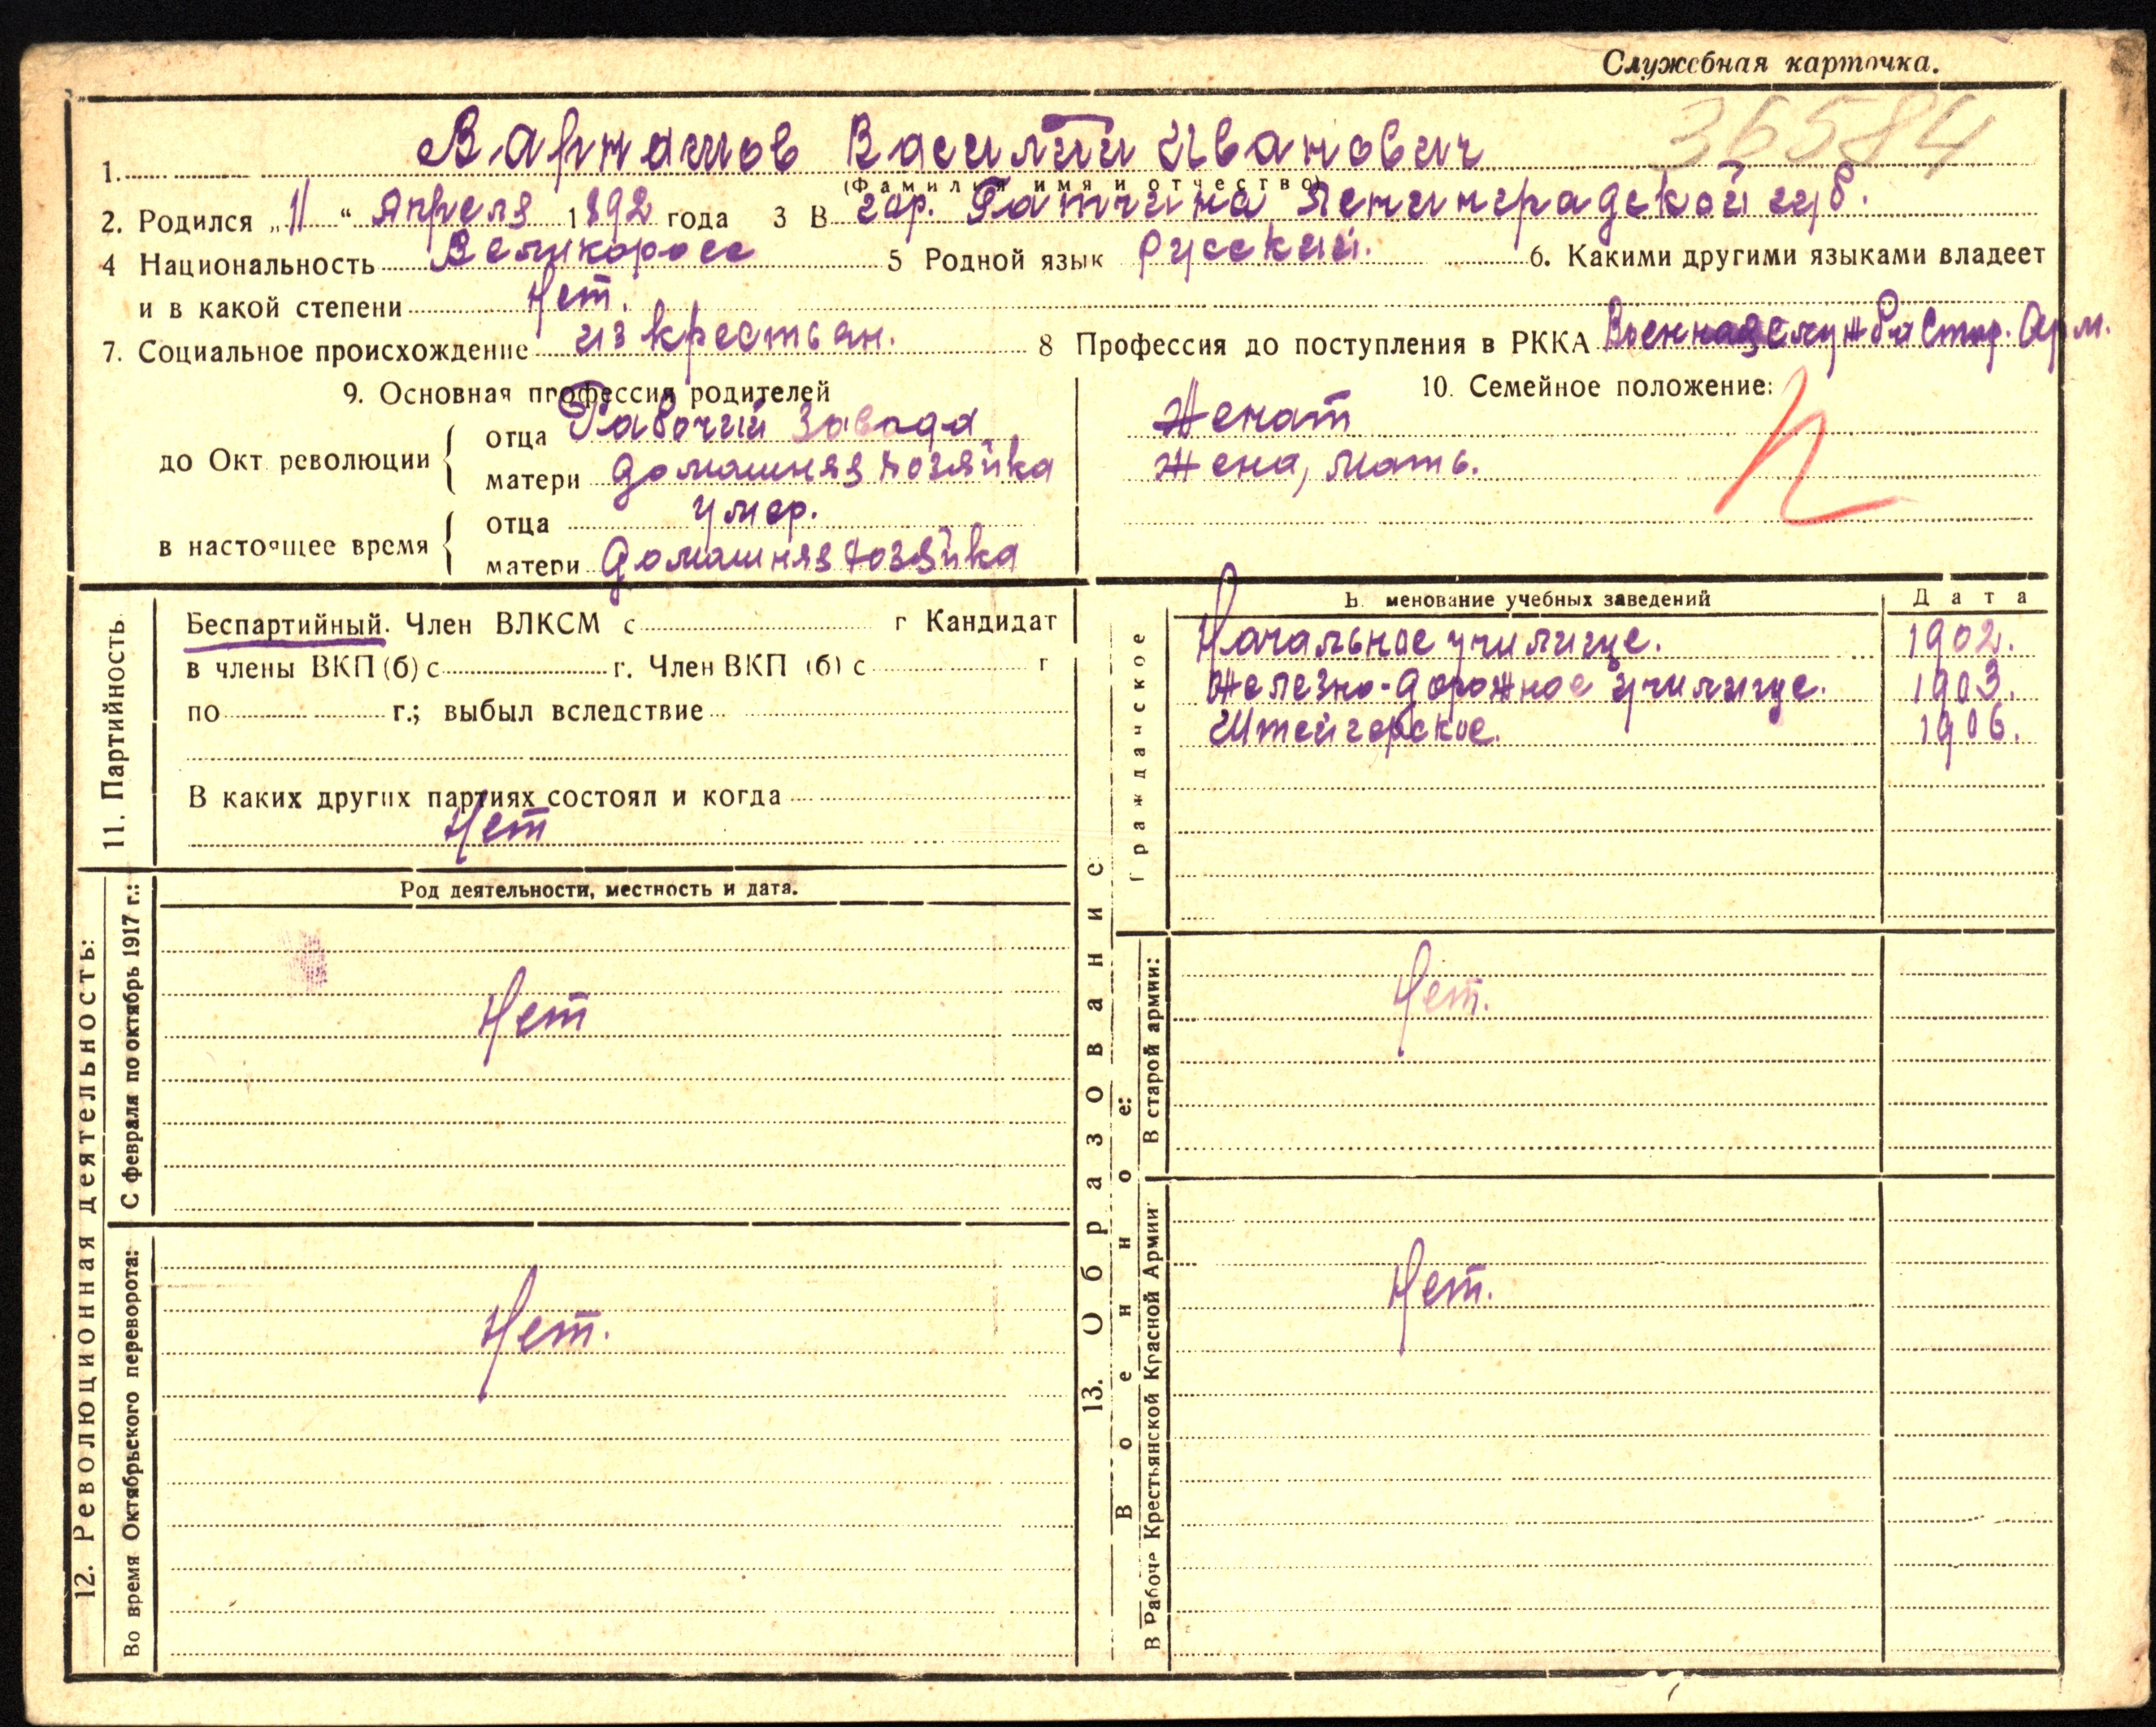 Служебная карточка.
36584
1. Варнашов Василий Иванович
(Фамилия имя и отчество)
2. Родился „11“ Апреля 1892 года 3 В гор. Гатчина Ленинградской губ.
4 Национальность Великоросс 5 Родной язык русский. 6. Какими другими языками владеет
и в какой степени Нет.
7. Социальное происхождение из крестьян. 8 Профессия до поступления в РККА Военная служба Стар. Арм.
9. Основная профессия родителей
10. Семейное положение:
до Окт. революции
отца Рабочий завода
матери домашняя хозяйка
в настоящее время
отца умер.
матери домашняя хозяйка
Женат
Жена, мать.
11. Партийность
Беспартийный. Член ВЛКСМ с г Кандидат
в члены ВКП(б) с г. Член ВКП (б) с г
по г.; выбыл вследствие
В каких других партиях состоял и когда
Нет
12. Революционная деятельность:
С февраля по октябрь 1917 г.:
Род деятельности, местность и дата.
Нет
Во время Октябрьского переворота:
Нет.
13. Образование
Гражданское
менование учебных заведений Дата
Начальное училище. 1902.
Железно-дорожное училище. 1903.
Штейгерское. 1906.
Военное:
В старой армии:
Нет.
В Рабоче Крестьянской Красной Армии
Нет.